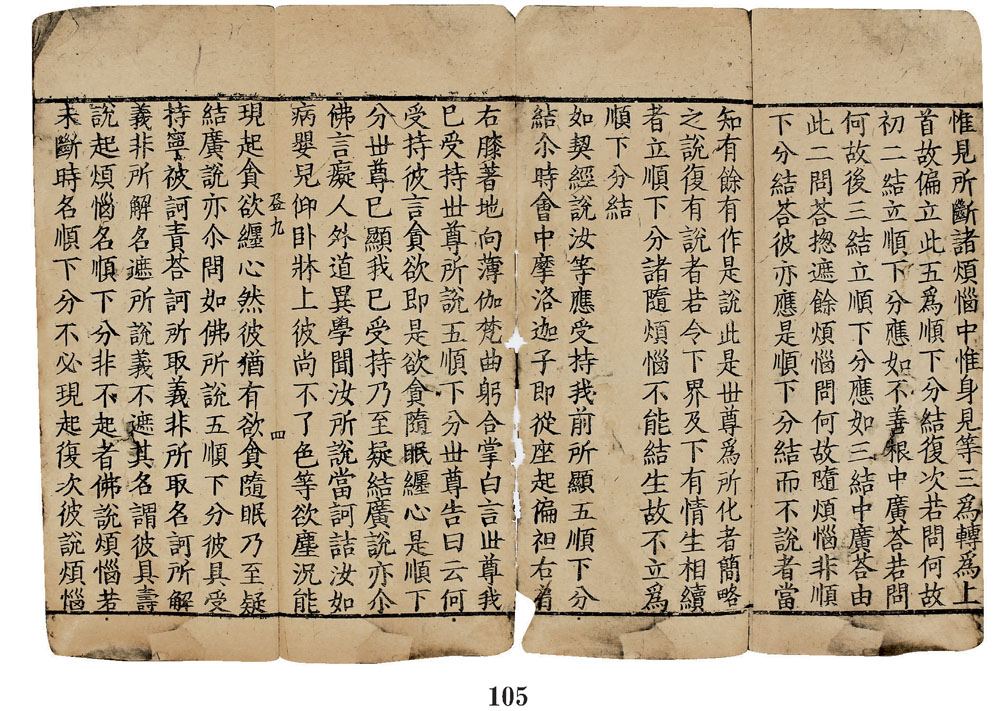 惟見所斷諸煩惱中惟身見等三為轉為上
首故偏立此五為順下分結復次若問何故
初二結立順下分應如不善根中廣荅若問
何故後三結立順下分應如三結中廣荅由
此二問荅揔遮餘煩惱問何故隨煩惱非順
下分結荅彼亦應是順下分結而不說者當
知有餘有作是說此是世尊為所化者簡略
之說復有說者若令下界及下有情生相續
者立順下分諸隨煩惱不能結生故不立為
順下分結
如契經說汝等應受持我前所顯五順下分
結尒時會中摩洛迦子即從座起徧袒右肩
右膝著地向薄伽梵曲躬合掌白言世尊我
已受持世尊所說五順下分世尊告曰云何
受持彼言貪欲即是欲貪隨眠纏心是順下
分世尊已顯我已受持乃至疑結廣說亦尒
佛言癡人外道異學聞汝所說當訶詰汝如
病嬰兒仰卧牀上彼尚不了色等欲塵況能
盈九 四
現起貪欲纏心然彼猶有欲貪隨眠乃至疑
結廣說亦尒問如佛所說五順下分彼具受
持寧被訶責荅訶所取義非所取名訶所解
義非所解名遮所說義不遮其名謂彼具壽
說起煩惱名順下分非不起者佛說煩惱若
未斷時名順下分不必現起復次彼說煩惱
105